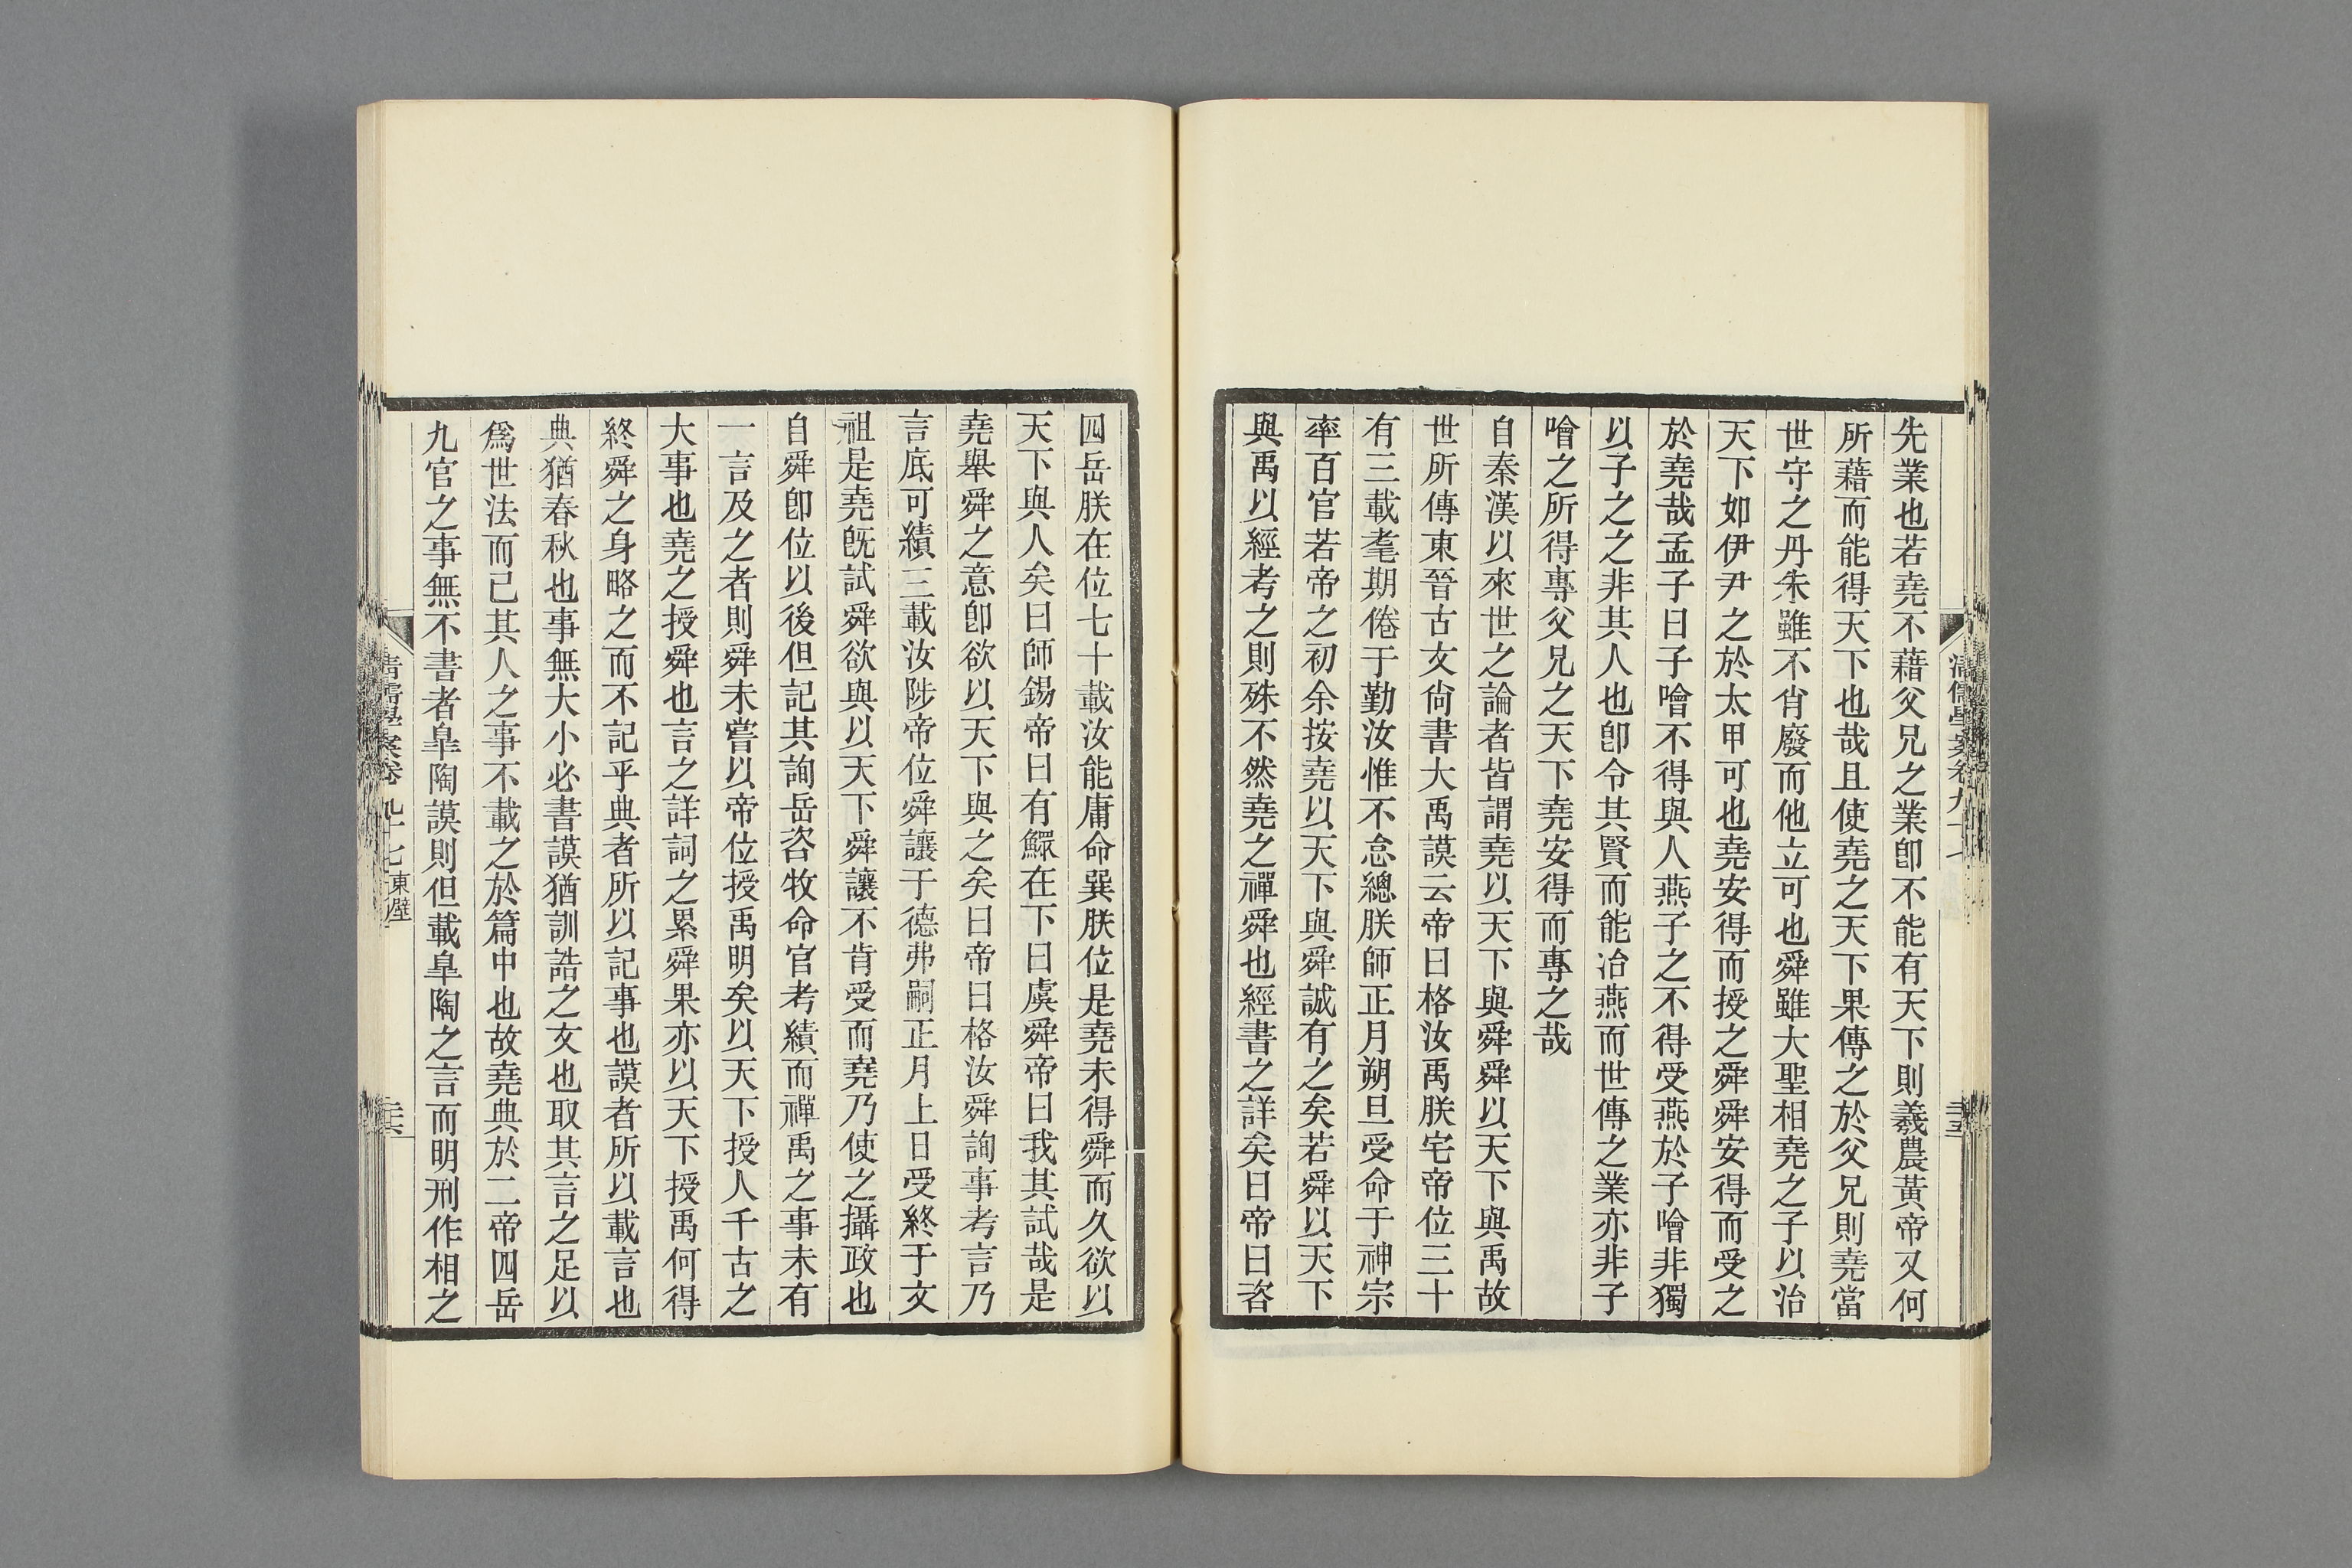 先業也若堯不藉父兄之業卽不能有天下則羲農黃帝又何
所藉而能得天下也哉且使堯之天下果傳之於父兄則堯當
世守之丹朱雖不肖廢而他立可也舜雖大聖相堯之子以治
天下如伊尹之於太甲可也堯安得而授之舜舜安得而受之
於堯哉孟子曰子噲不得與人燕子之不得受燕於子噲非獨
以子之之非其人也卽令其賢而能治燕而世傳之業亦非子
噲之所得專父兄之天下堯安得而專之哉
自秦漢以來世之論者皆謂堯以天下與舜舜以天下與禹故
世所傳東晉古文尙書大禹謨云帝曰格汝禹朕宅帝位三十
有三載耄期倦于勤汝惟不怠總朕師正月朔旦受命于神宗
率百官若帝之初余按堯以天下與舜誠有之矣若舜以天下
與禹以經考之則殊不然堯之禪舜也經書之詳矣曰帝曰咨
清儒學案卷九十七
三五
四岳朕在位七十載汝能庸命巽朕位是堯未得舜而久欲以
天下與人矣曰師錫帝曰有鰥在下曰虞舜帝曰我其試哉是
堯舉舜之意卽欲以天下與之矣曰帝曰格汝舜詢事考言乃
言底可績三載汝陟帝位舜讓于德弗嗣正月上日受終于文
祖是堯旣試舜欲與以天下舜讓不肯受而堯乃使之攝政也
自舜卽位以後但記其詢岳咨牧命官考績而禪禹之事未有
一言及之者則舜未嘗以帝位授禹明矣以天下授人千古之
大事也堯之授舜也言之詳詞之累舜果亦以天下授禹何得
終舜之身略之而不記乎典者所以記事也謨者所以載言也
典猶春秋也事無大小必書謨猶訓誥之文也取其言之足以
爲世法而已其人之事不載之於篇中也故堯典於二帝四岳
九官之事無不書者皐陶謨則但載皐陶之言而明刑作相之
清儒學案卷九十七 東壁
三六